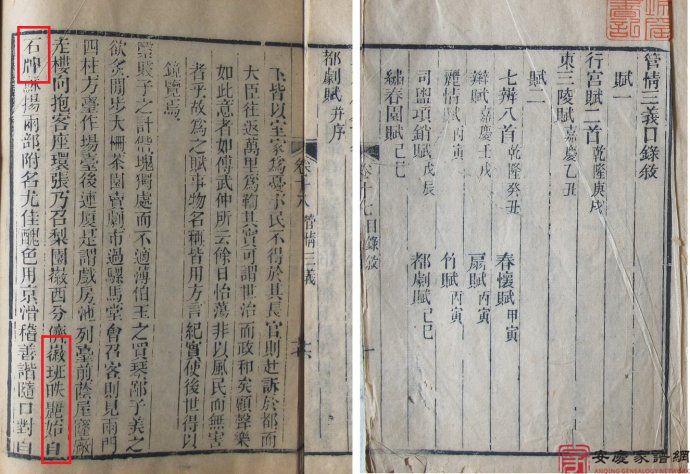 管情三義目錄敘
賦一
行宮賦二首 乾隆庚戌
東三陵賦 嘉慶乙丑
賦二
七辨八首 乾隆癸丑 春懷賦 甲寅
辨賦 嘉慶壬戌 扇賦 丙寅
麗情賦 丙寅 竹賦 丙寅
司鹽項銷賦 戊辰 都劇賦 己巳
繡春園賦 己巳
卷十七目錄敘
一
都劇賦 并序
卷十八 管情三義
皆以室家為憂民不得於其長官則赴訴於都而
大臣往返萬里為輸其實可謂世治而政和矣顧聲樂
如此意者如傅武仲所云餘日怡蕩非以風民而無害
者乎故為之賦事物名稱皆用方言紀實使後世得以
鏡覽焉
子之計偕塊獨處而不適薄伯玉之買琴鄙子羲之
欲炙閒步大柵茶園賣劇市過騾馬堂會召客則見兩門
四柱方臺作場臺後連廈是謂戲房池列臺前蔭屋
左樓向抱客座環張乃召梨園嶽西分儕徽班昳麗始自
石牌揚兩部附名尤佳醜色用京滑稽善諧隨口對白
安慶家譜網
ANQING GENEALOGY NETWORK